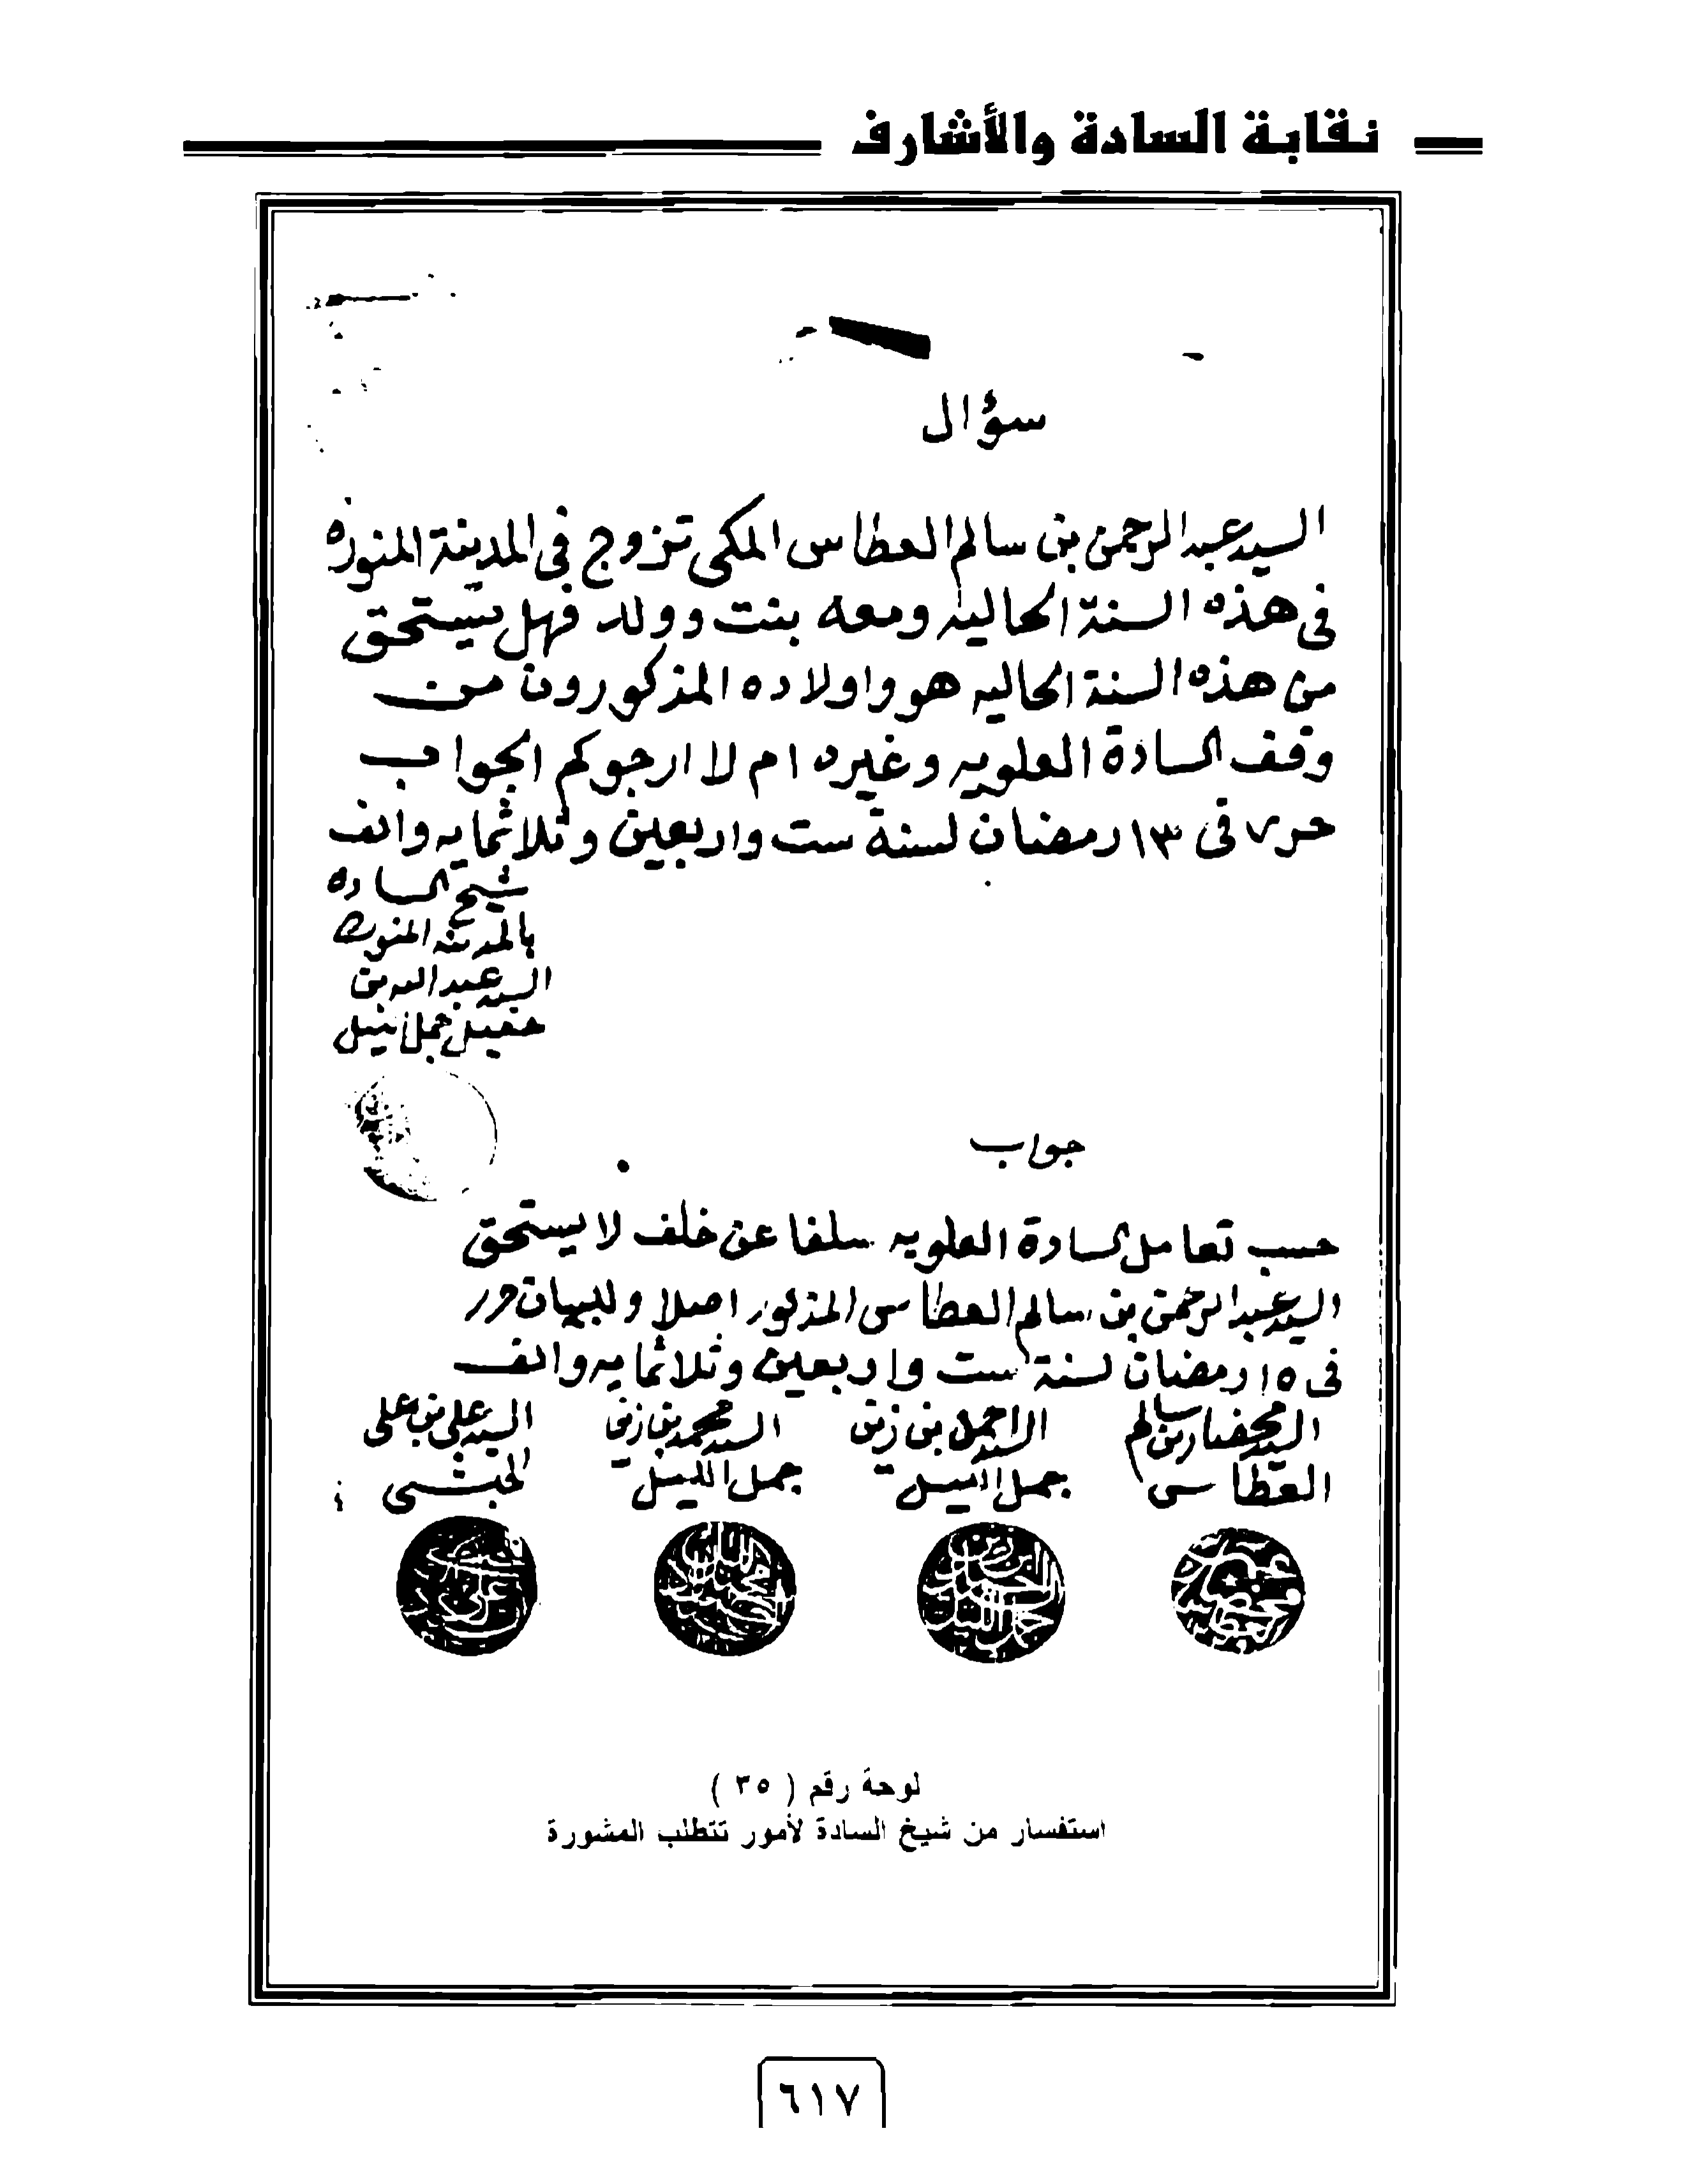 نقابة السادة والأشارف
سؤال
السيد عبدالرحمن بن سالم العطاس المكى تزوج فى المدينة المنوره
فى هذه السنة الحاليه ومعه بنت وولد فهل يستحق
من هذه السنة الحاليه هو واولاده المذكورون من
وقف السادة العلويه وغيره ام لا ارجوكم الجواب
حرر فى ١٣ رمضان لسنة ست واربعين وثلاثمايه والف
شيخ السادة
بالمدينه المنوره
السيد عبدالله بن
جمل الليل
جواب
حسب تعامل السادة العلويه سلفا عن خلف لا يستحق
السيد عبدالرحمن بن سالم العطاس المذكور اصلا وللبيان حرر
فى ١٥ رمضان لسنة ست واربعين وثلاثمايه والف
السيد محضار بن سالم
العطاس
السيد احمد بن زين
جمل الليل
السيد محمد بن زين
جمل الليل
السيد على بن على
الحبشى
لوحة رقم ( ٣٥ )
استفسار من شيخ السادة لأمور تتطلب المشورة
٦١٧